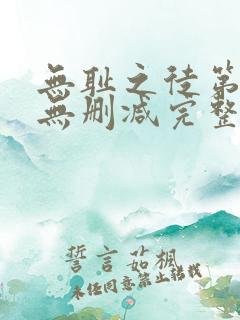 無耻之徒第
無删减完整
誓言茹楓
未经同意禁止转载